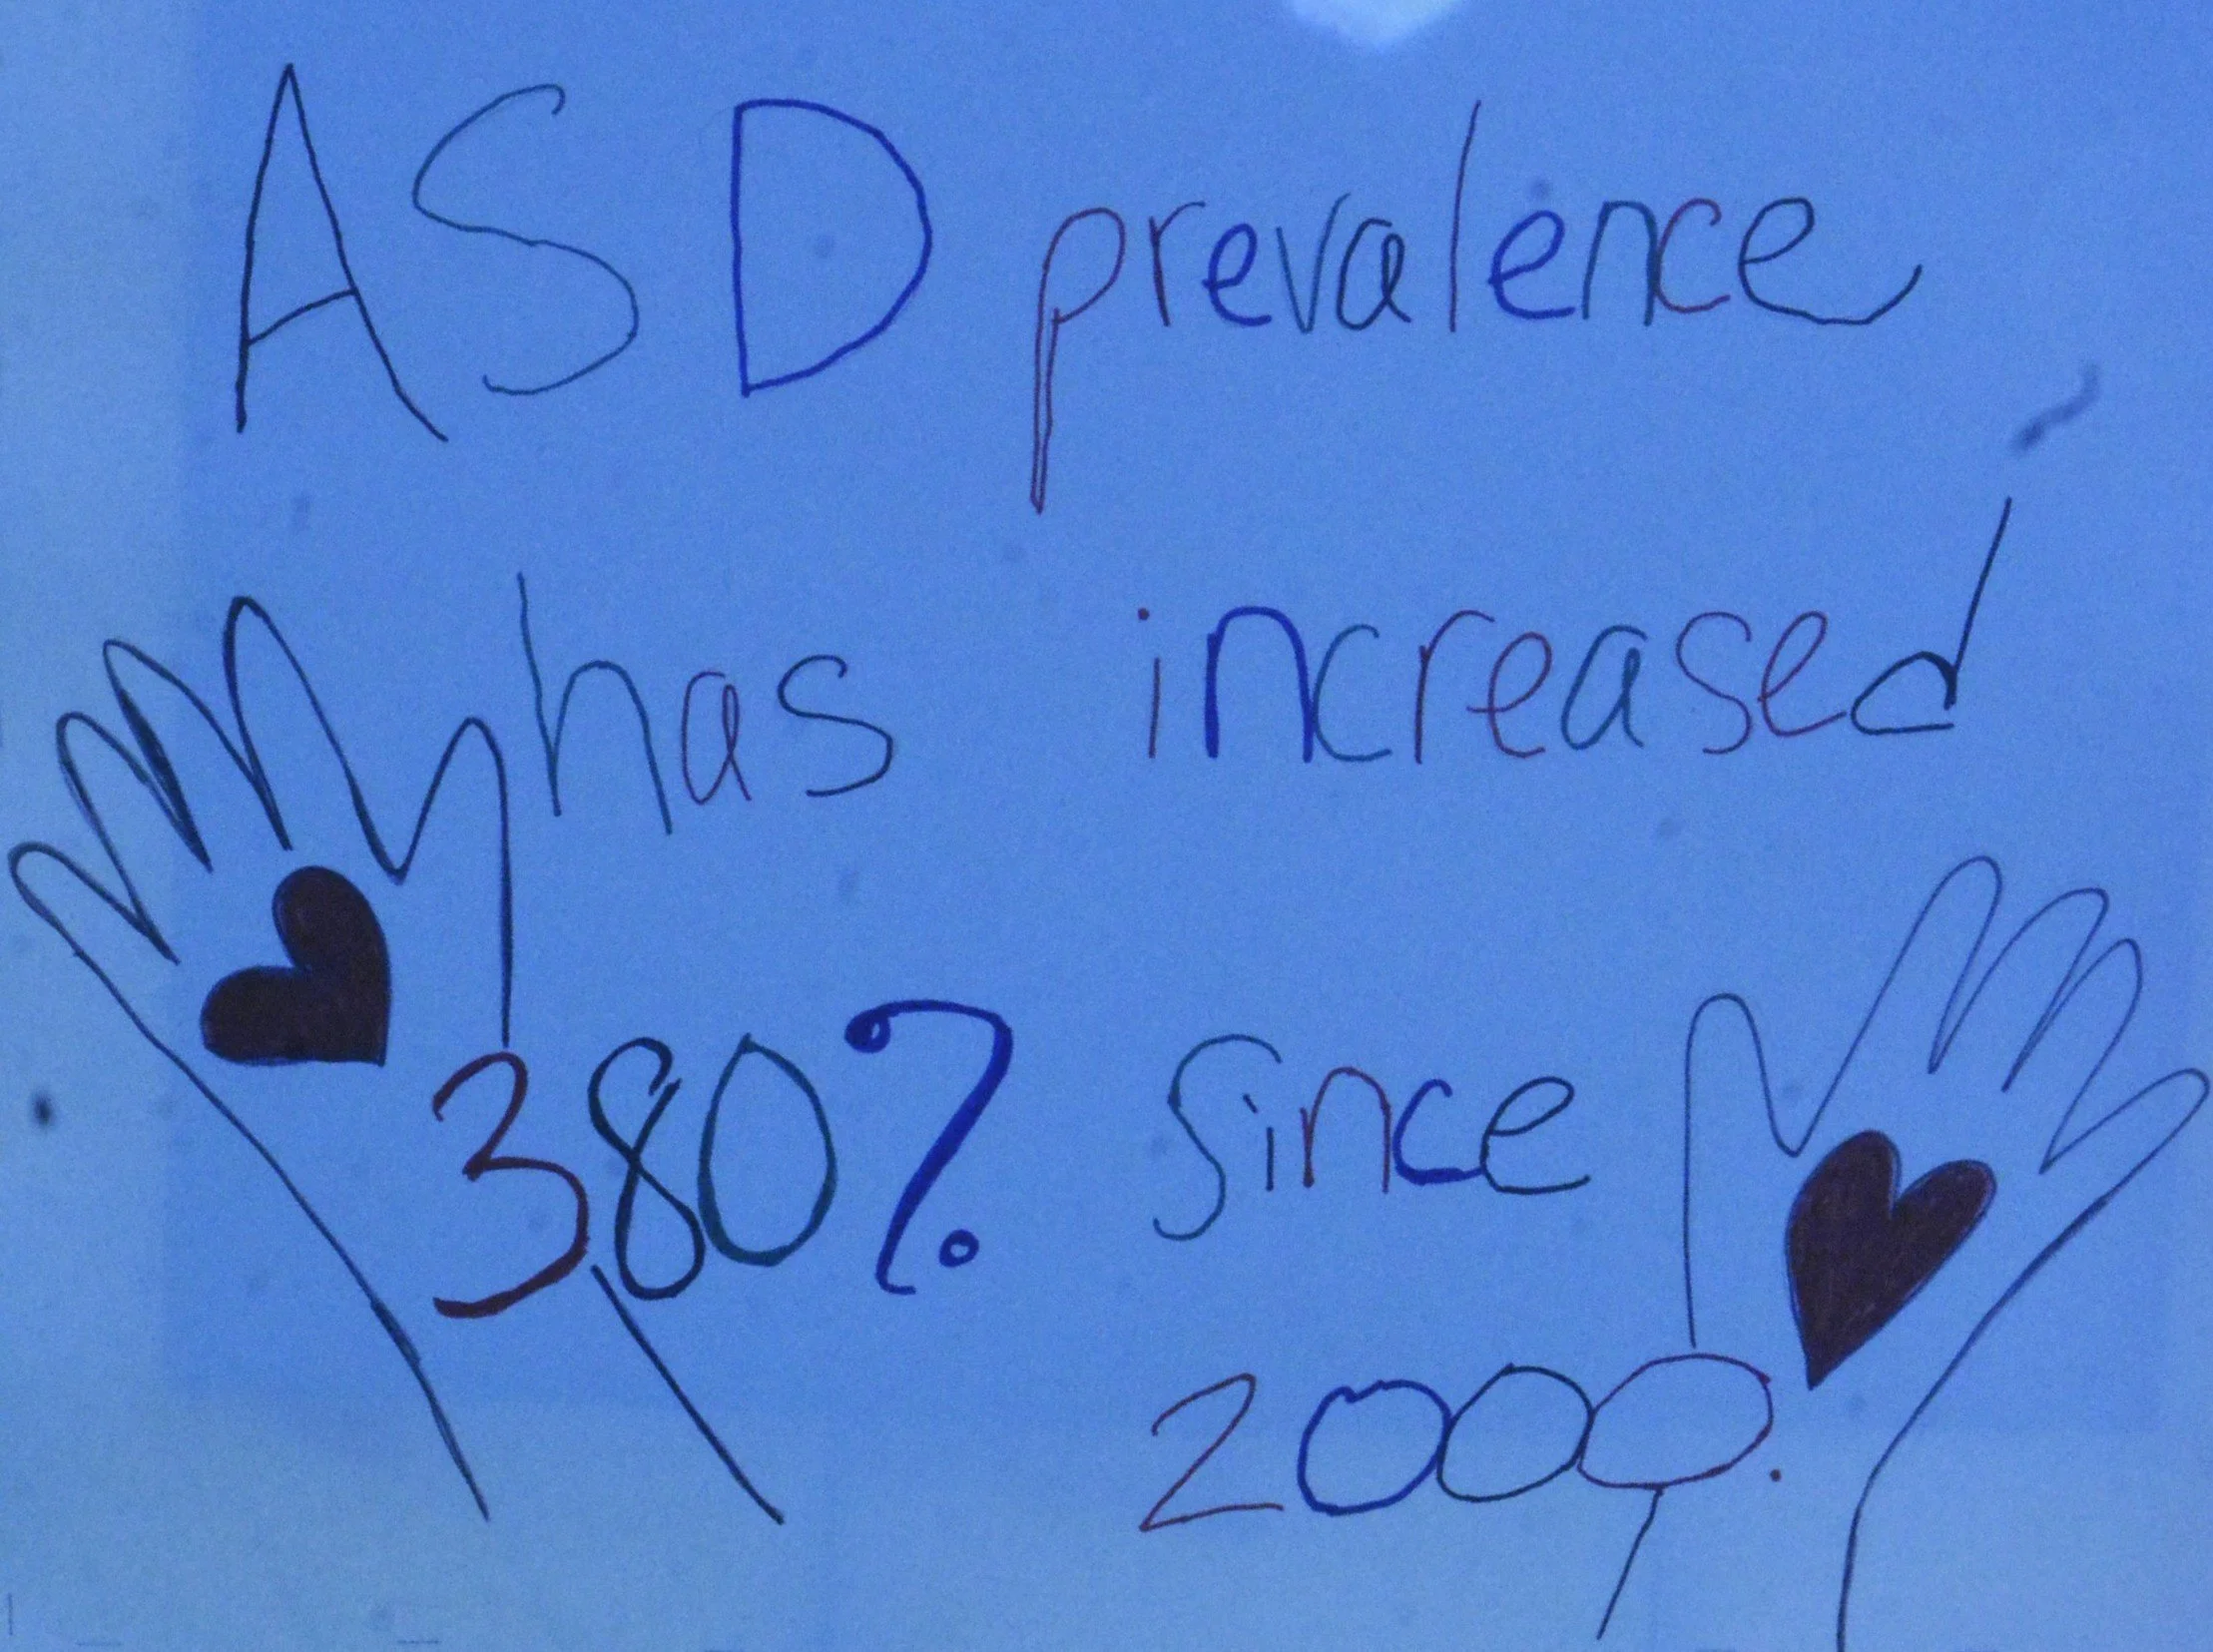 ASD prevalence
has increased
380% since
2000.